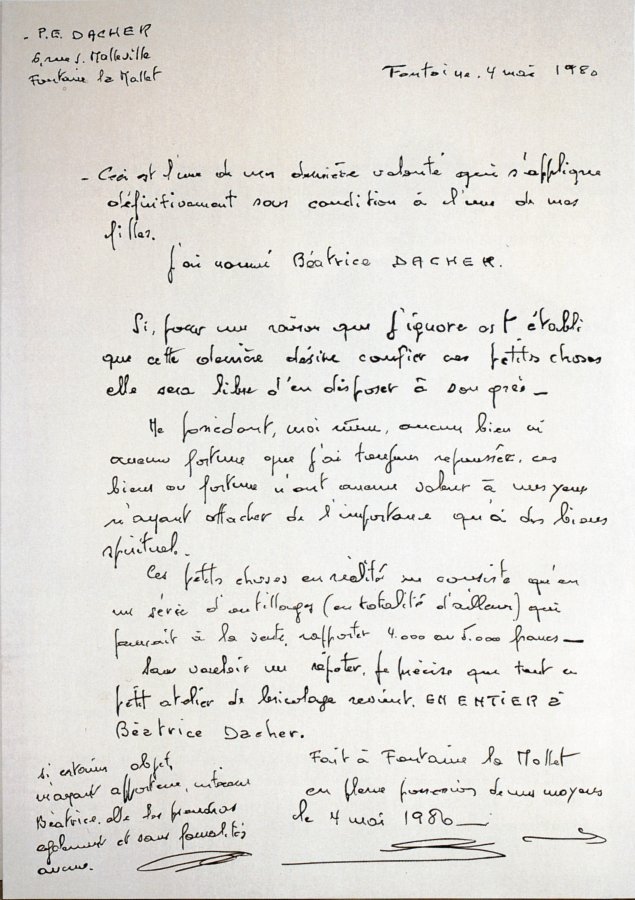 - P.E. DACHER
6, rue J. Malleville
Fontaine la Mallet
Fontaine, 4 mai 1980
- Ceci est l'une de mes dernière volonté qui s'applique
définitivement sous condition à l'une de mes
filles.
J'ai nommé Béatrice DACHER.
Si, pour une raison que j'ignore est établi
que cette dernière désire confier ces petits choses
elle sera libre d'en disposer à son grès _
Ne possédant, moi même, aucun bien ni
aucune fortune que j'ai toujours repoussée, ces
biens ou fortune n'ont aucune valeur à mes yeux
n'ayant attacher de l'importance qu'à des biens
spirituel.
Ces petits choses en réalité ne consiste qu'en
une série d'outillages (en totalité d'ailleurs) qui
pourrait à la vente, rapporter 4.000 ou 5.000 francs _
Sans vouloir me répéter, je précise que tout ce
petit atelier de bricolage revient, EN ENTIER à
Béatrice Dacher.
si certains objet,
m'ayant appartenu, intéresse
Béatrice, elle les prendras
également et sans formalités
aucune.
Fait à Fontaine la Mallet
en pleine possession de mes moyens
le 4 mai 1980 _